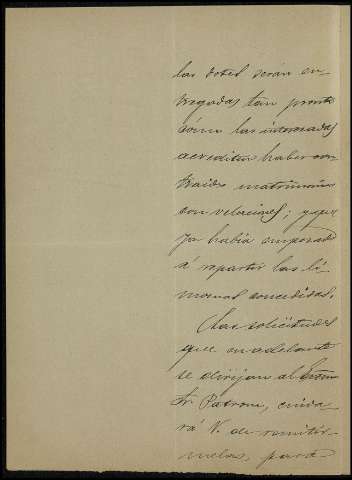 las dotes serán en-
tregadas tan pronto
cómo las interesadas
acrediten haber con-
traido matrimonio
con velaciones; y que
ya había empezado
á repartir las li-
mosnas concedidas.
Las solicitudes
que en adelante
se dirijan al Excmo
Sr. Patrono, cuida-
rá V. de remitír-
melas, para